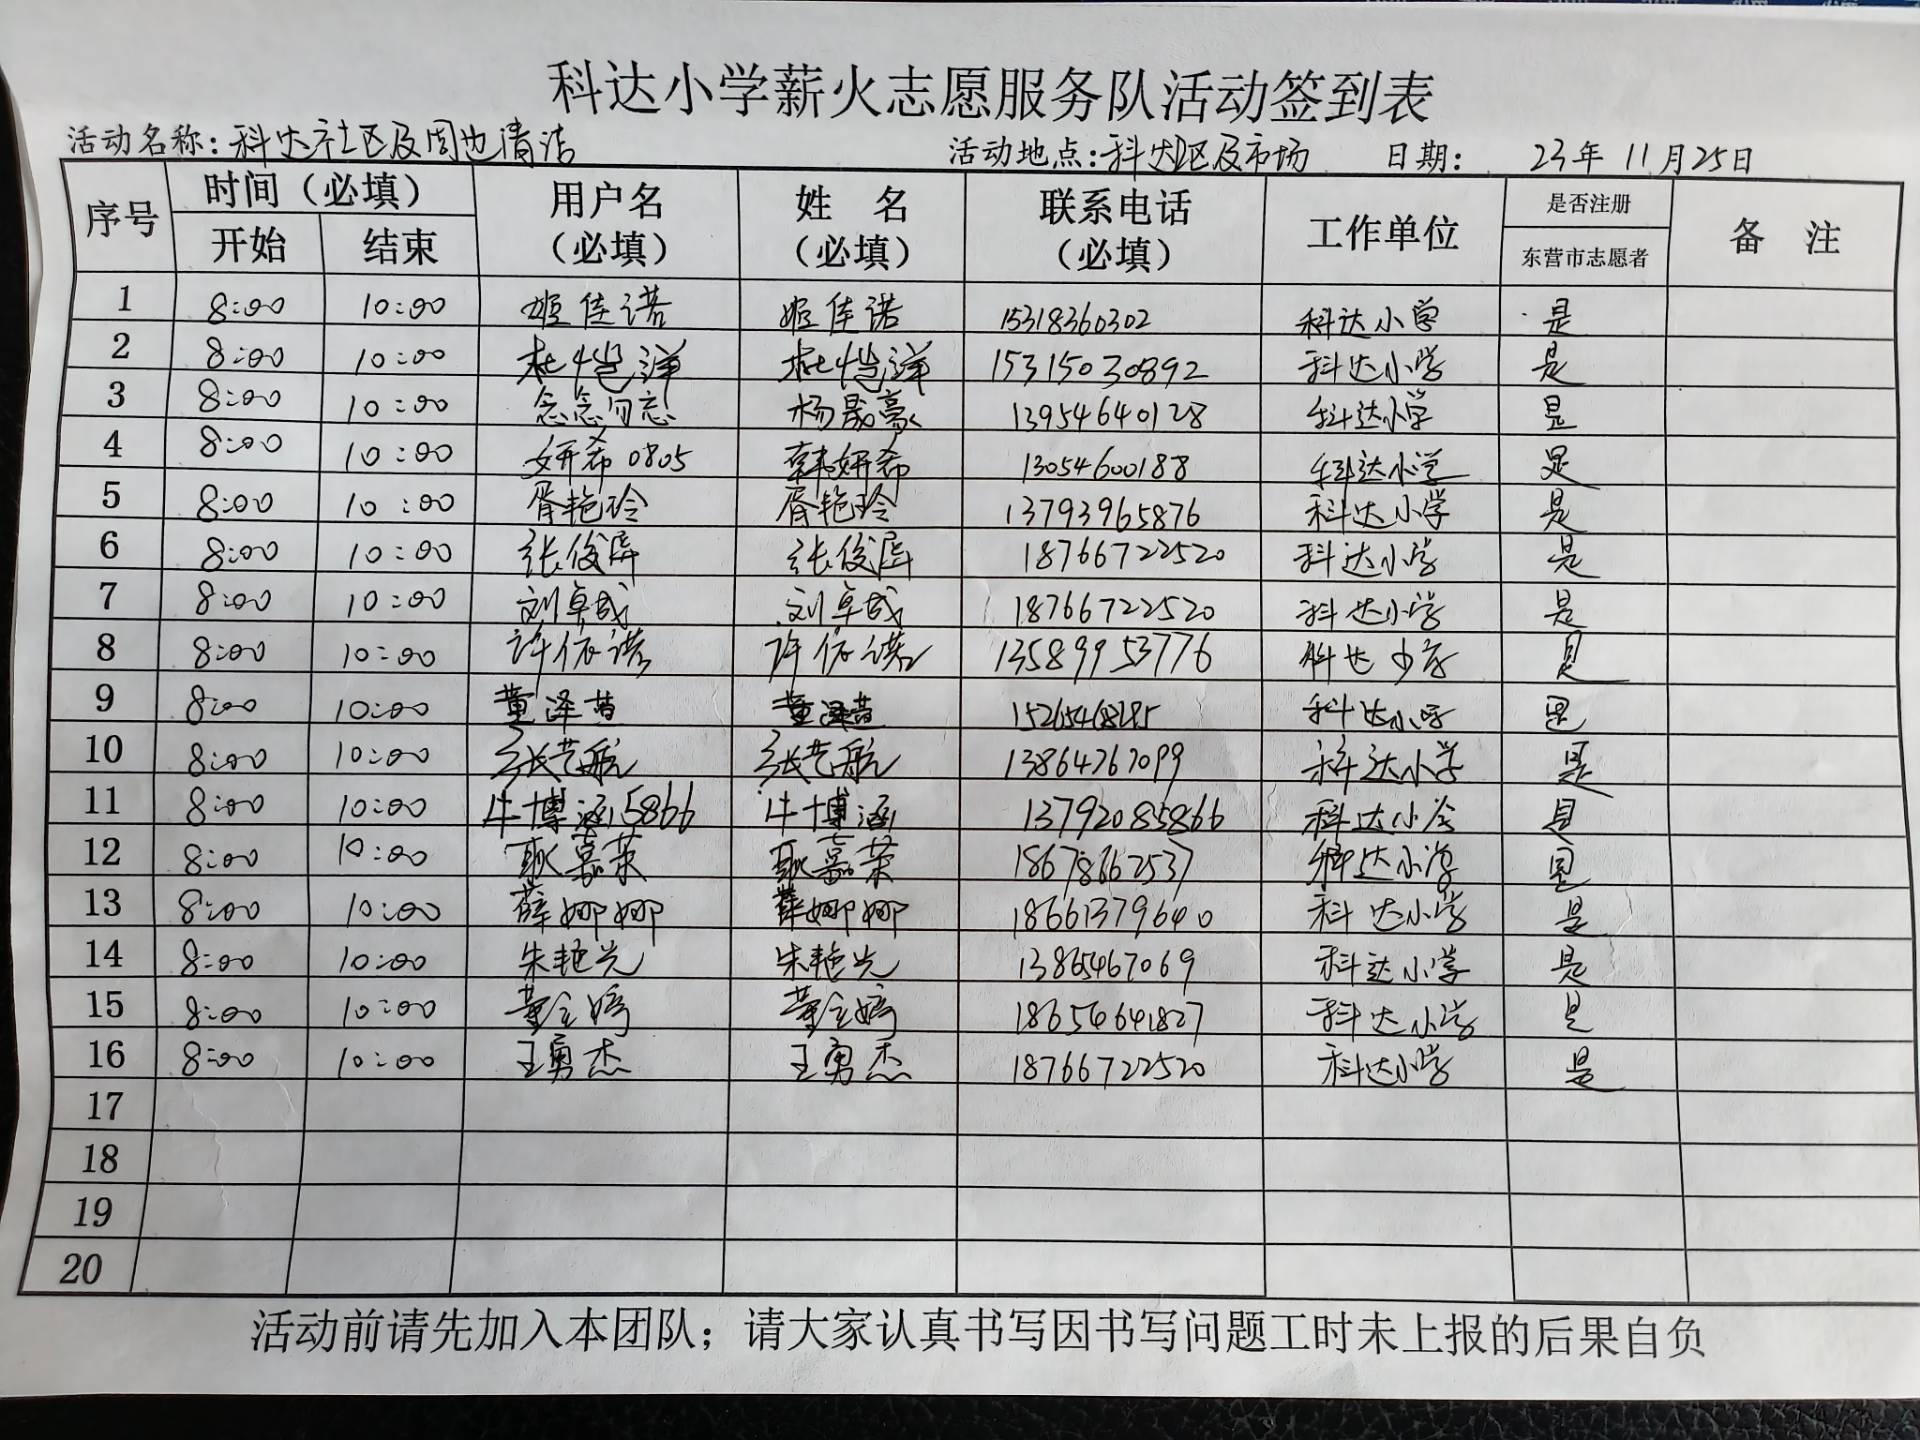 科达小学薪火志愿服务队活动签到表
活动名称：科达社区及周边清洁 活动地点：科达区及市场 日期： 23年11月25日
序号 时间（必填） 用户名（必填） 姓 名（必填） 联系电话（必填） 工作单位 是否注册 备 注
开始 结束 东营市志愿者
1 8:00 10:00 姬佳诺 姬佳诺 15318360302 科达小学 是
2 8:00 10:00 杜恺洋 杜恺洋 15315030892 科达小学 是
3 8:00 10:00 念念勿忘 杨晟豪 13954640128 科达小学 是
4 8:00 10:00 妍希0805 韩妍希 13054600188 科达小学 是
5 8:00 10:00 胥艳玲 胥艳玲 13793965876 科达小学 是
6 8:00 10:00 张俊 张俊 18766722520 科达小学 是
7 8:00 10:00 刘卓 刘卓 18766722520 科达小学 是
8 8:00 10:00 许依诺 许依诺 13589953776 科达小学 是
9 8:00 10:00 董泽 董泽 科达小学 是
10 8:00 10:00 张艺航 张艺航 13864767099 科达小学 是
11 8:00 10:00 牛博涵5866 牛博涵 13792085866 科达小学 是
12 8:00 10:00 耿嘉荣 耿嘉荣 18678662537 科达小学 是
13 8:00 10:00 薛娜娜 薛娜娜 18661379640 科达小学 是
14 8:00 10:00 朱艳光 朱艳光 13865467069 科达小学 是
15 8:00 10:00 董 董 18654641827 科达小学 是
16 8:00 10:00 王勇杰 王勇杰 18766722520 科达小学 是
17
18
19
20
活动前请先加入本团队；请大家认真书写因书写问题工时未上报的后果自负